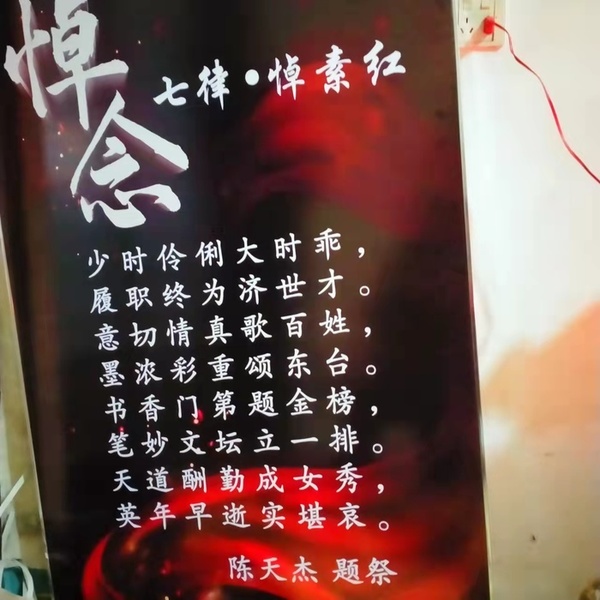 悼念
七律•悼素红
少时伶俐大时乖，
履职终为济世才。
意切情真歌百姓，
墨浓彩重颂东台。
书香门第题金榜，
笔妙文坛立一排。
天道酬勤成女秀，
英年早逝实堪哀。
陈天杰 题祭